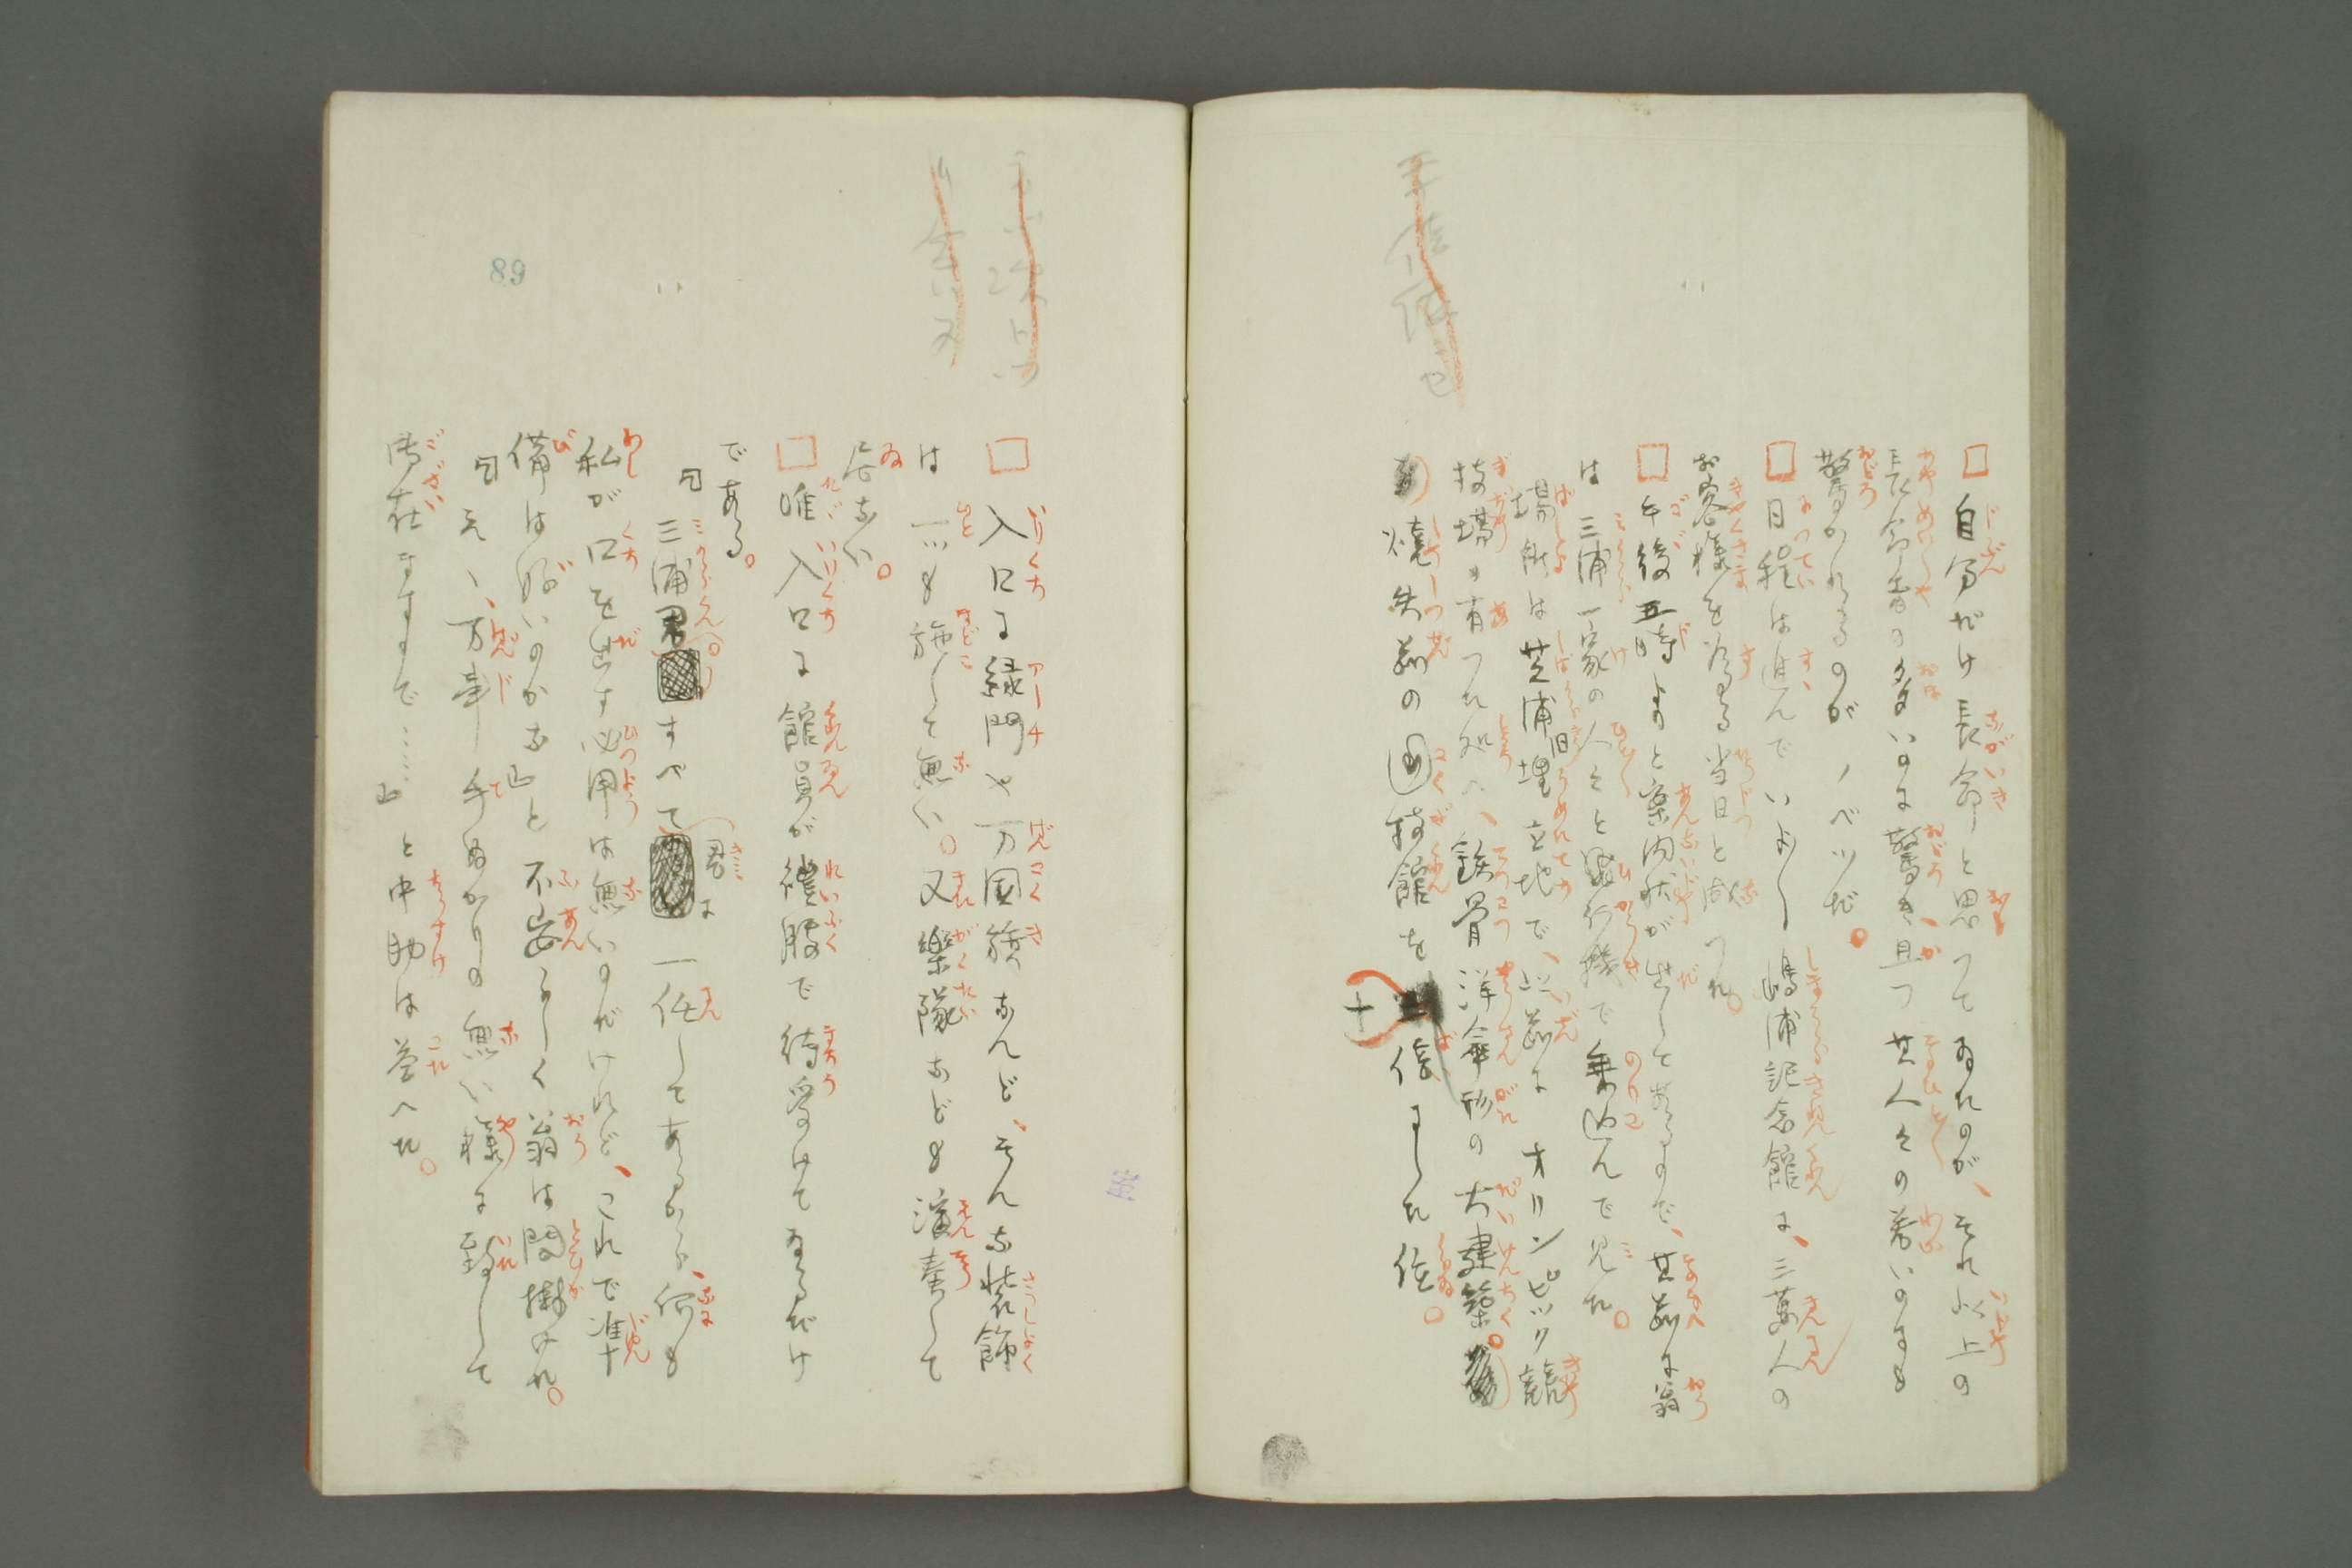 □自分だけ長命と思つてゐたのが、それ以上の
長命者の多いのに驚き、且つ其人々の若いのにも
驚かれるのがノベツだ。
□日程は進んでいよ〳〵嶋浦記念館に、三萬人の
お客様を為る当日と成つた。
□午後五時よりと案内状が出して有るので、其前に翁
は三浦一家の人々と飛行機で乗込んで見た。
場所は芝浦旧埋立地で、以前にオリンピック競
技場の有つた処へ、鉄骨洋傘形の大建築。
焼失前の国技館を十倍にした位。
□入口に緑門や万国旗なんど、そんな装飾
は一ツも施して無い。又楽隊なども演奏して
居ない。
□唯入口に館員が礼服で待受けてゐるだけ
である。
「三浦君すべて君に一任してあるから、何も
私が口を出す必用は無いのだけれど、これで準
備は好いのかな」と不安らしく翁は問掛けた。
「えゝ、万事手ぬかりの無い様に致して
御在ますまで……」と中助は答へた。
89